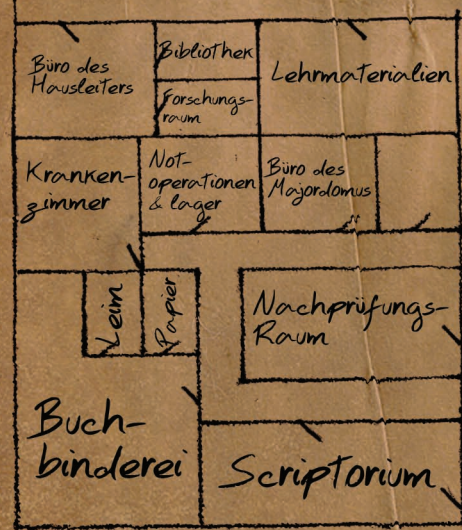 Büro des
Hausleiters
Bibliothek
Forschungs-
raum
Lehrmaterialien
Kranken-
zimmer
Not-
operationen
& lager
Büro des
Majordomus
Leim
Papier
Nachprüfungs-
Raum
Buch-
binderei
Scriptorium